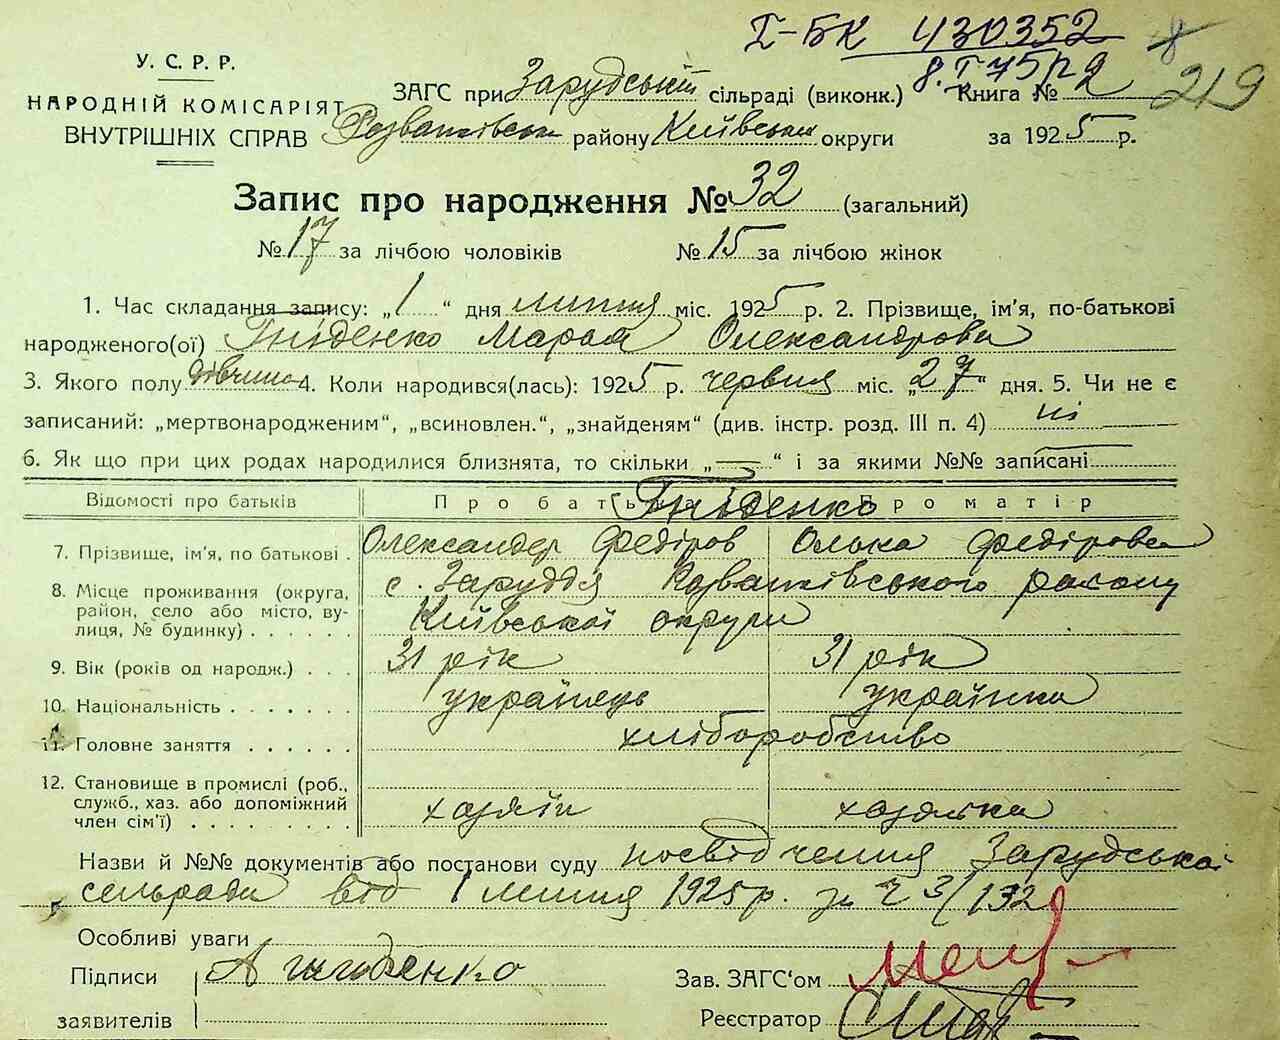 I-БК 430352
219
У. С. Р. Р.
НАРОДНІЙ КОМІСАРІЯТ
ВНУТРІШНІХ СПРАВ
ЗАГС при Зарудській сільраді (виконк.) Книга № 2
Розважівськ району Київськ округи за 1925 р.
Запис про народження № 32 (загальний)
№ 17 за лічбою чоловіків № 15 за лічбою жінок
1. Час складання запису: „1“ дня липня міс. 1925 р. 2. Прізвище, ім'я, по-батькові
народженого(ої) Гніденко Марія Олександрова
3. Якого полу дівчина 4. Коли народився(лась): 1925 р. червня міс. „27“ дня. 5. Чи не є
записаний: „мертвонародженим“, „всиновлен.“, „знайденям“ (див. інстр. розд. III п. 4) ні
6. Як що при цих родах народилися близнята, то скільки „—“ і за якими №№ записані
Відомості про батьків Про батька Про матір
Гніденко
7. Прізвище, ім'я, по батькові . Олександер Федіров Олька Федірова
8. Місце проживання (округа, район, село або місто, вулиця, № будинку) . . . . . . с. Заруддя Розважівського району
Київської округи
9. Вік (років од народж.) . . . 31 рік 31 рік
10. Національність . . . . . . українець українка
11. Головне заняття . . . . . . хліборобство
12. Становище в промислі (роб., служб., хаз. або допоміжний член сім'ї) . . . . . . . . хазяїн хазяйка
Назви й №№ документів або постанови суду посвідчення Зарудської
сельради від 1 липня 1925 р. за Ч 3/132
Особливі уваги
Підписи А Гниденко Зав. ЗАГС‘ом
заявителів Реєстратор